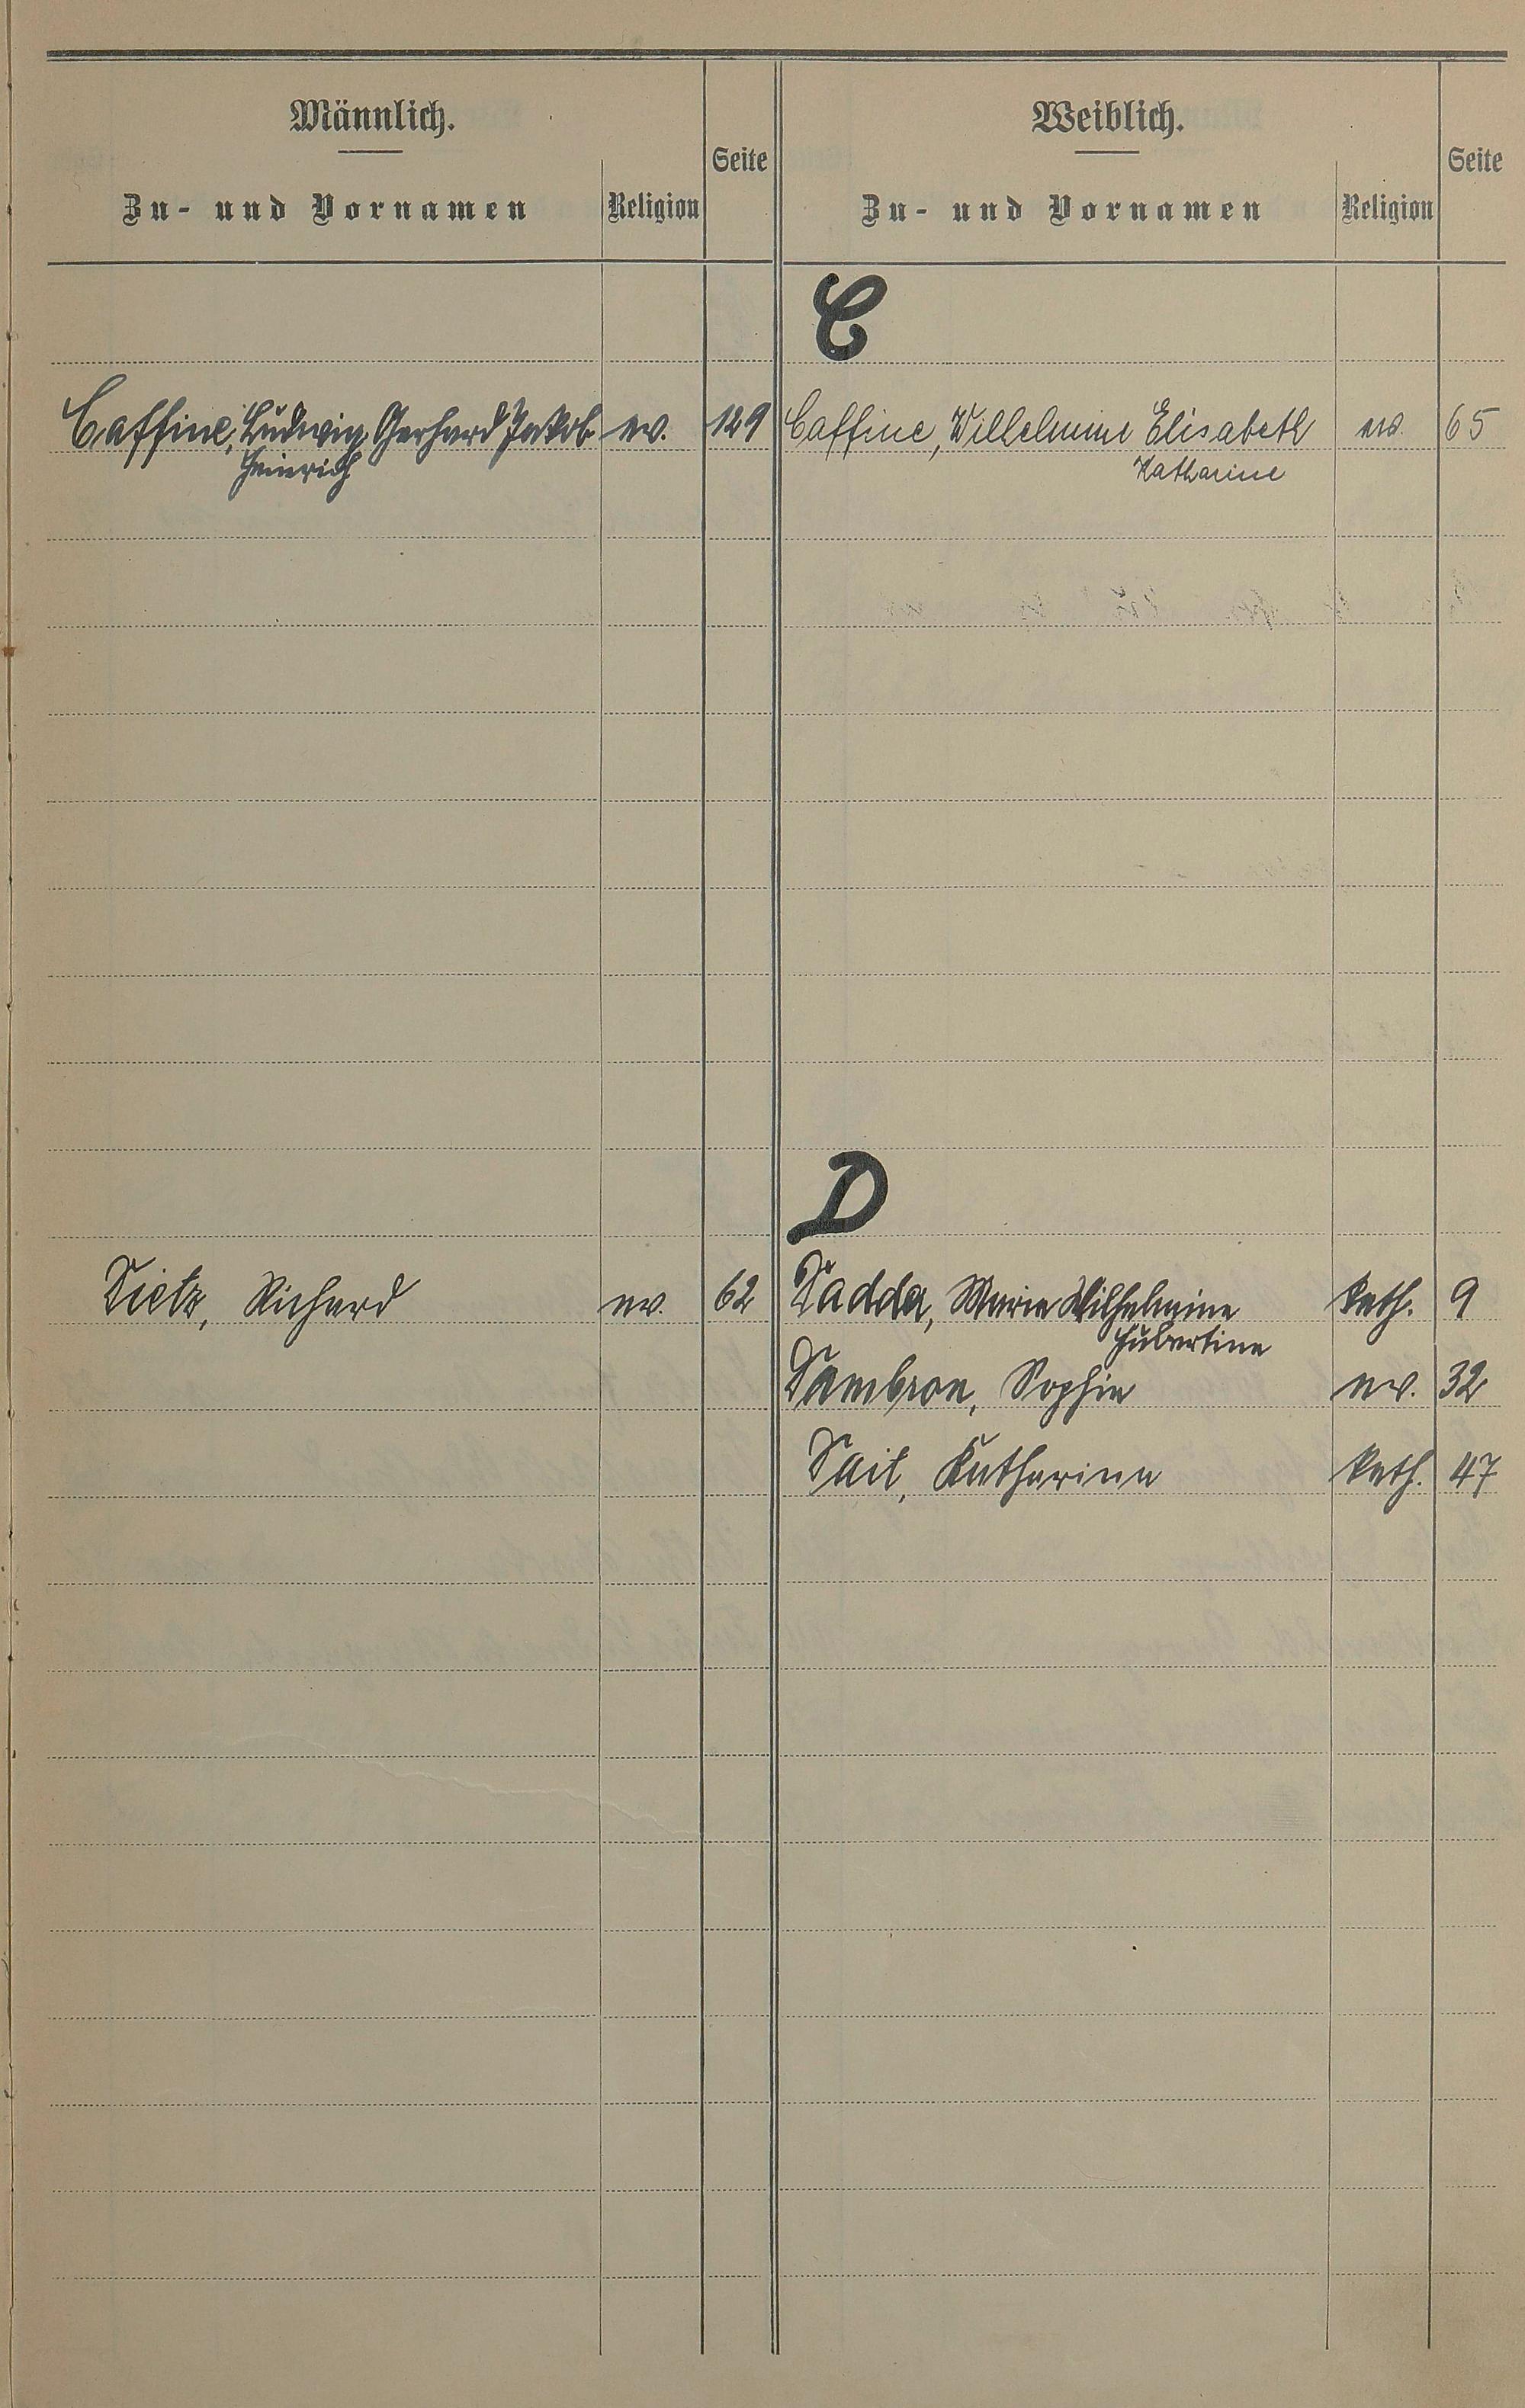 Männlich.
Zu- und Vornamen
Religion
Seite
Weiblich.
Zu- und Vornamen
Religion
Seite
C
Caffine, Ludwig Gerhard Jakob ev. 129
Heinrich
Caffine, Wilhelmine Elisabeth ev. 65
Katharine
D
Dietz, Richard ev. 62
Dadder, Marie Wilhelmine kath. 9
Hubertine
Dambron, Sophie ev. 32
Dail, Katharina kath. 47